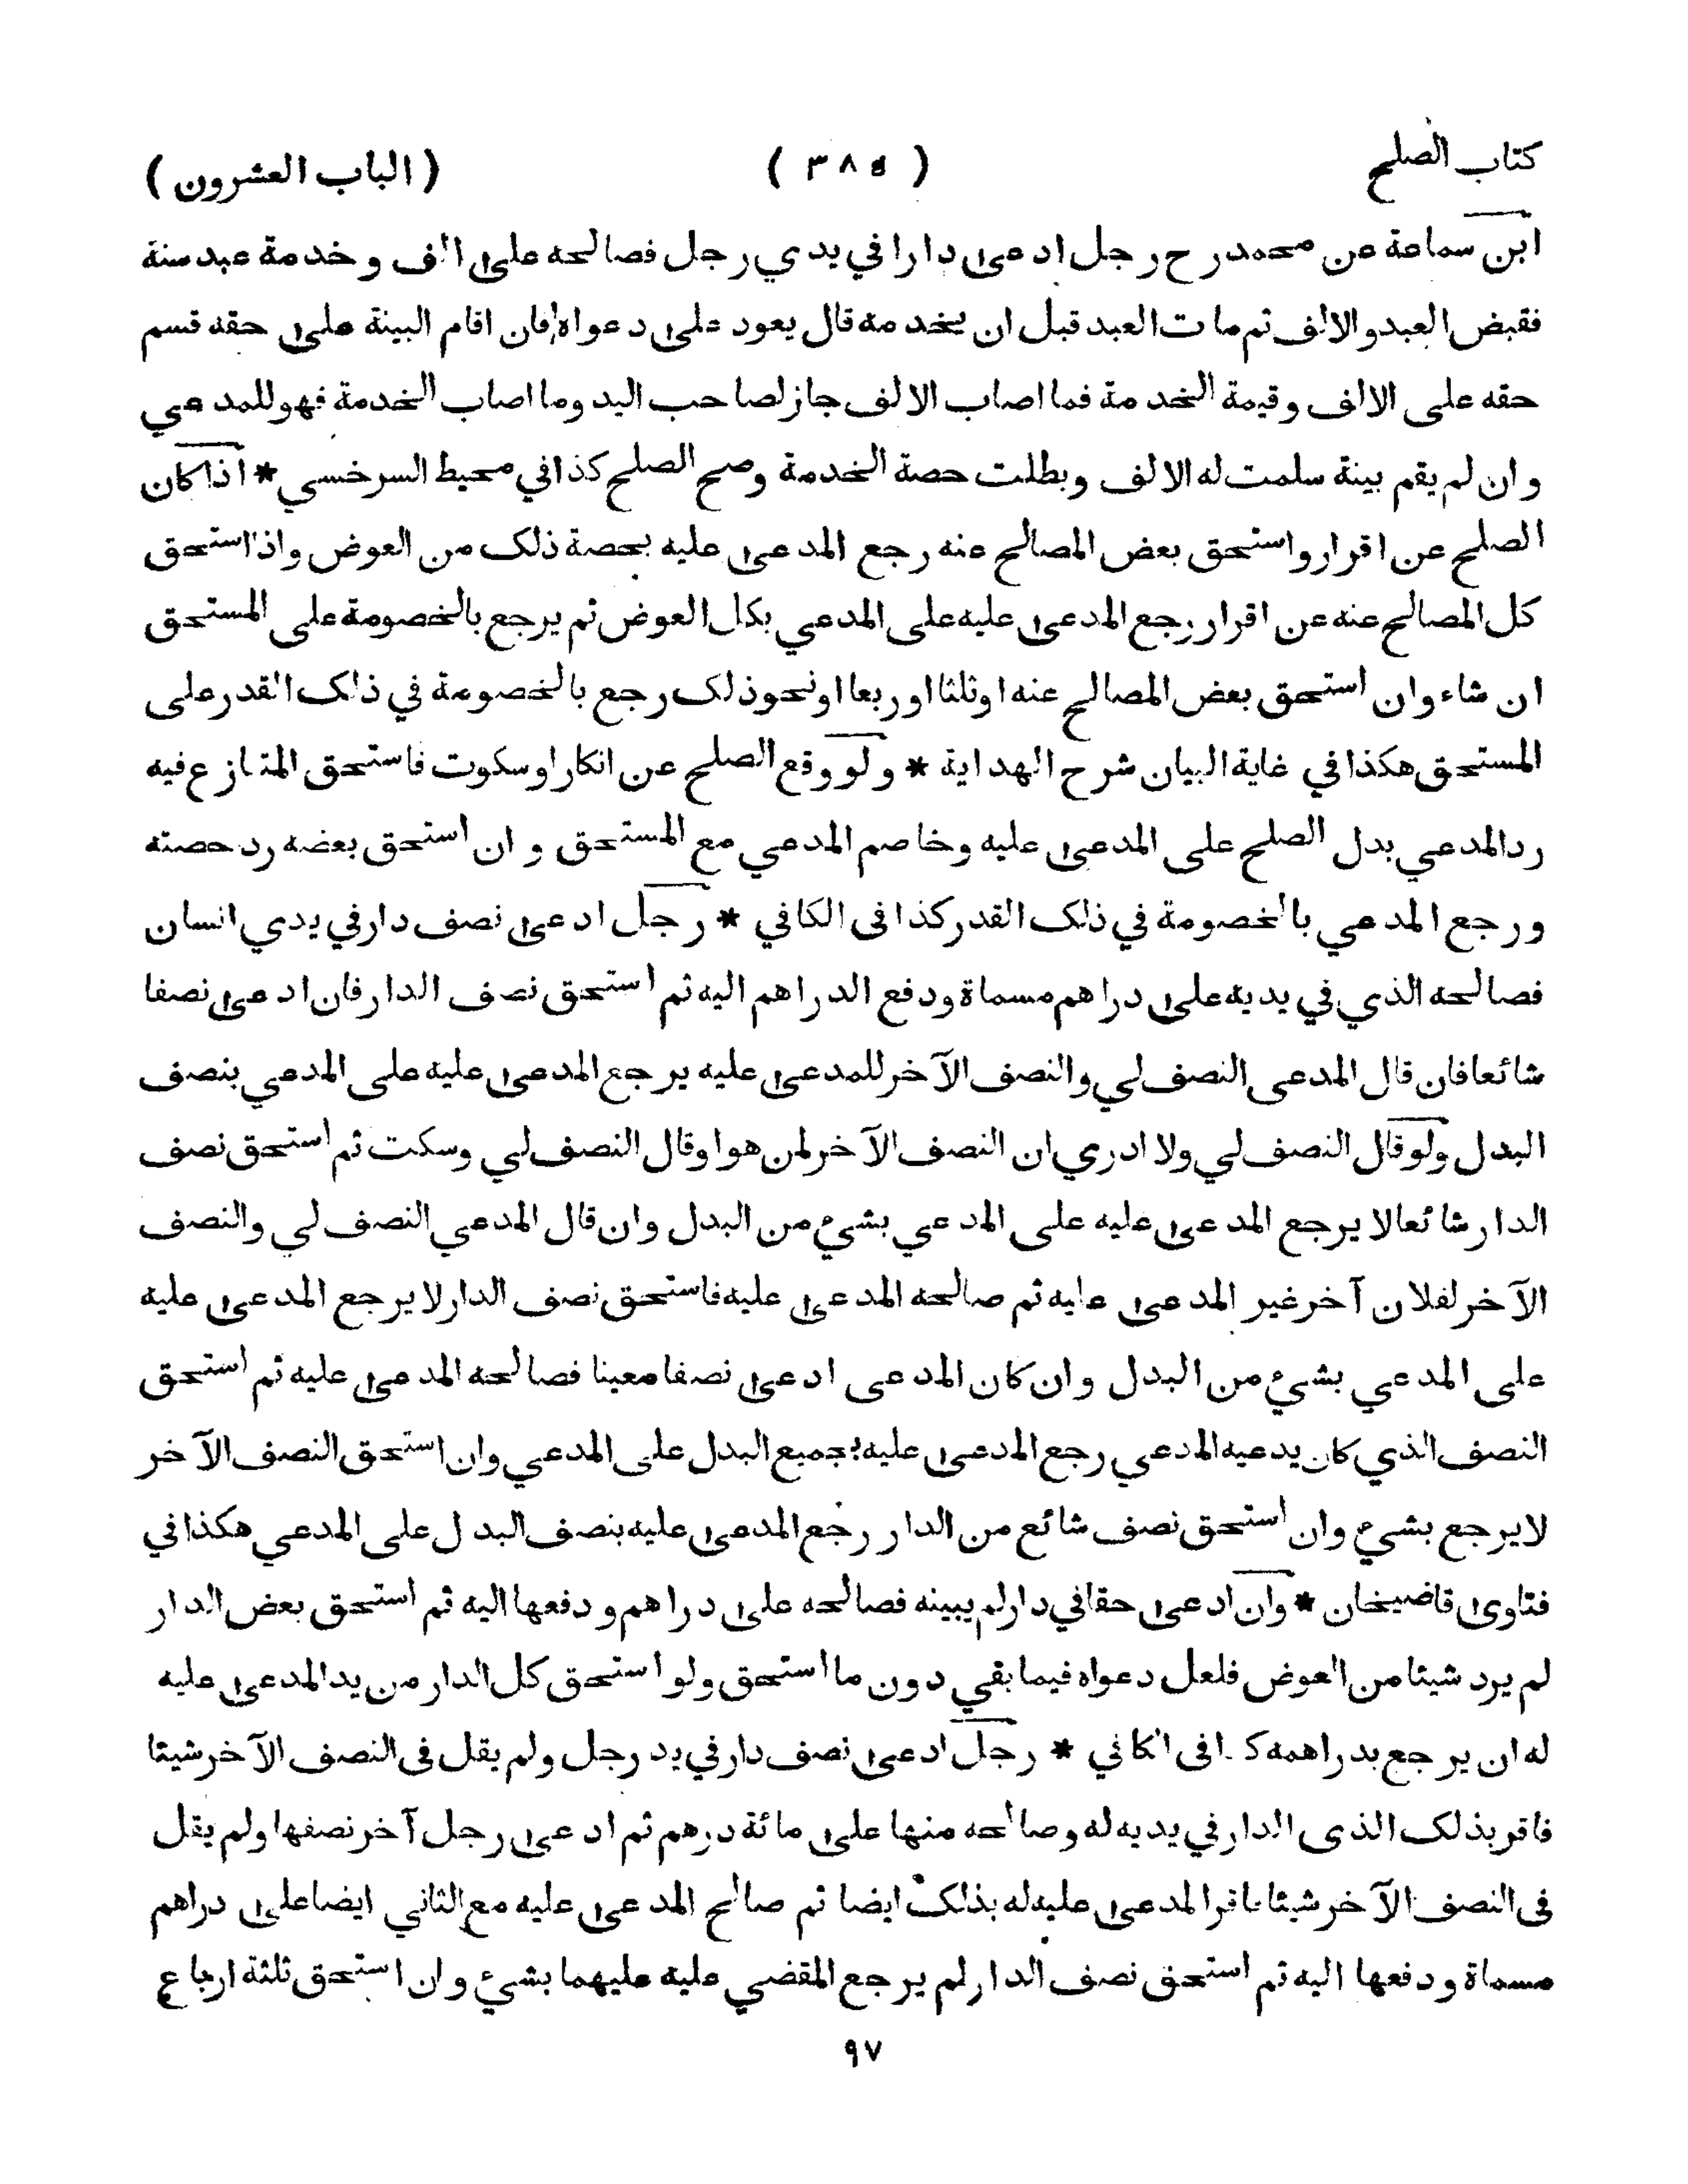 كتاب الصلح ( ٣٨٥ ) ( الباب العشرون )
ابن سماعة عن محمد رح رجل ادعى دارا في يدي رجل فصالحه على الف وخدمة عبد سنة
فقبض العبد والالف ثم مات العبد قبل ان يخدمه قال يعود على دعواه فان اقام البينة على حقه قسم
حقه على الالف وقيمة الخدمة فما اصاب الالف جاز لصاحب اليد وما اصاب الخدمة فهو للمدعي
وان لم يقم بينة سلمت له الالف وبطلت حصة الخدمة وصح الصلح كذا في محيط السرخسي * اذا كان
الصلح عن اقرار واستحق بعض المصالح عنه رجع المدعى عليه بحصة ذلك من العوض واذا استحق
كل المصالح عنه عن اقرار رجع المدعى عليه على المدعي بكل العوض ثم يرجع بالخصومة على المستحق
ان شاء وان استحق بعض المصالح عنه او ثلثا او ربعا او نحو ذلك رجع بالخصومة في ذلك القدر على
المستحق هكذا في غاية البيان شرح الهداية * ولو وقع الصلح عن انكار او سكوت فاستحق المتنازع فيه
رد المدعي بدل الصلح على المدعى عليه وخاصم المدعي مع المستحق وان استحق بعضه رد حصته
ورجع المدعي بالخصومة في ذلك القدر كذا فى الكافي * رجل ادعى نصف دار في يدي انسان
فصالحه الذي في يديه على دراهم مسماة ودفع الدراهم اليه ثم استحق نصف الدار فان ادعى نصفا
شائعا فان قال المدعى النصف لي والنصف الآخر للمدعى عليه يرجع المدعى عليه على المدعي بنصف
البدل ولو قال النصف لي ولا ادري ان النصف الآخر لمن هو او قال النصف لي وسكت ثم استحق نصف
الدار شائعا لا يرجع المدعى عليه على المدعي بشيء من البدل وان قال المدعي النصف لي والنصف
الآخر لفلان آخر غير المدعى عليه ثم صالحه المدعى عليه فاستحق نصف الدار لا يرجع المدعى عليه
على المدعي بشيء من البدل وان كان المدعى ادعى نصفا معينا فصالحه المدعى عليه ثم استحق
النصف الذي كان يدعيه المدعي رجع المدعى عليه بجميع البدل على المدعي وان استحق النصف الآخر
لا يرجع بشيء وان استحق نصف شائع من الدار رجع المدعى عليه بنصف البدل على المدعي هكذا في
فتاوى قاضيخان * وان ادعى حقا في دار لم يبينه فصالحه على دراهم ودفعها اليه ثم استحق بعض الدار
لم يرد شيئا من العوض فلعل دعواه فيما بقي دون ما استحق ولو استحق كل الدار من يد المدعى عليه
له ان يرجع بدراهمه كذا فى الكافي * رجل ادعى نصف دار في يد رجل ولم يقل فى النصف الآخر شيئا
فاقر بذلك الذى الدار في يديه له وصالحه منها على مائة درهم ثم ادعى رجل آخر نصفها ولم يقل
فى النصف الآخر شيئا فاقر المدعى عليه له بذلك ايضا ثم صالح المدعى عليه مع الثاني ايضا على دراهم
مسماة ودفعها اليه ثم استحق نصف الدار لم يرجع المقضي عليه عليهما بشيء وان استحق ثلثة ارباع
٩٧